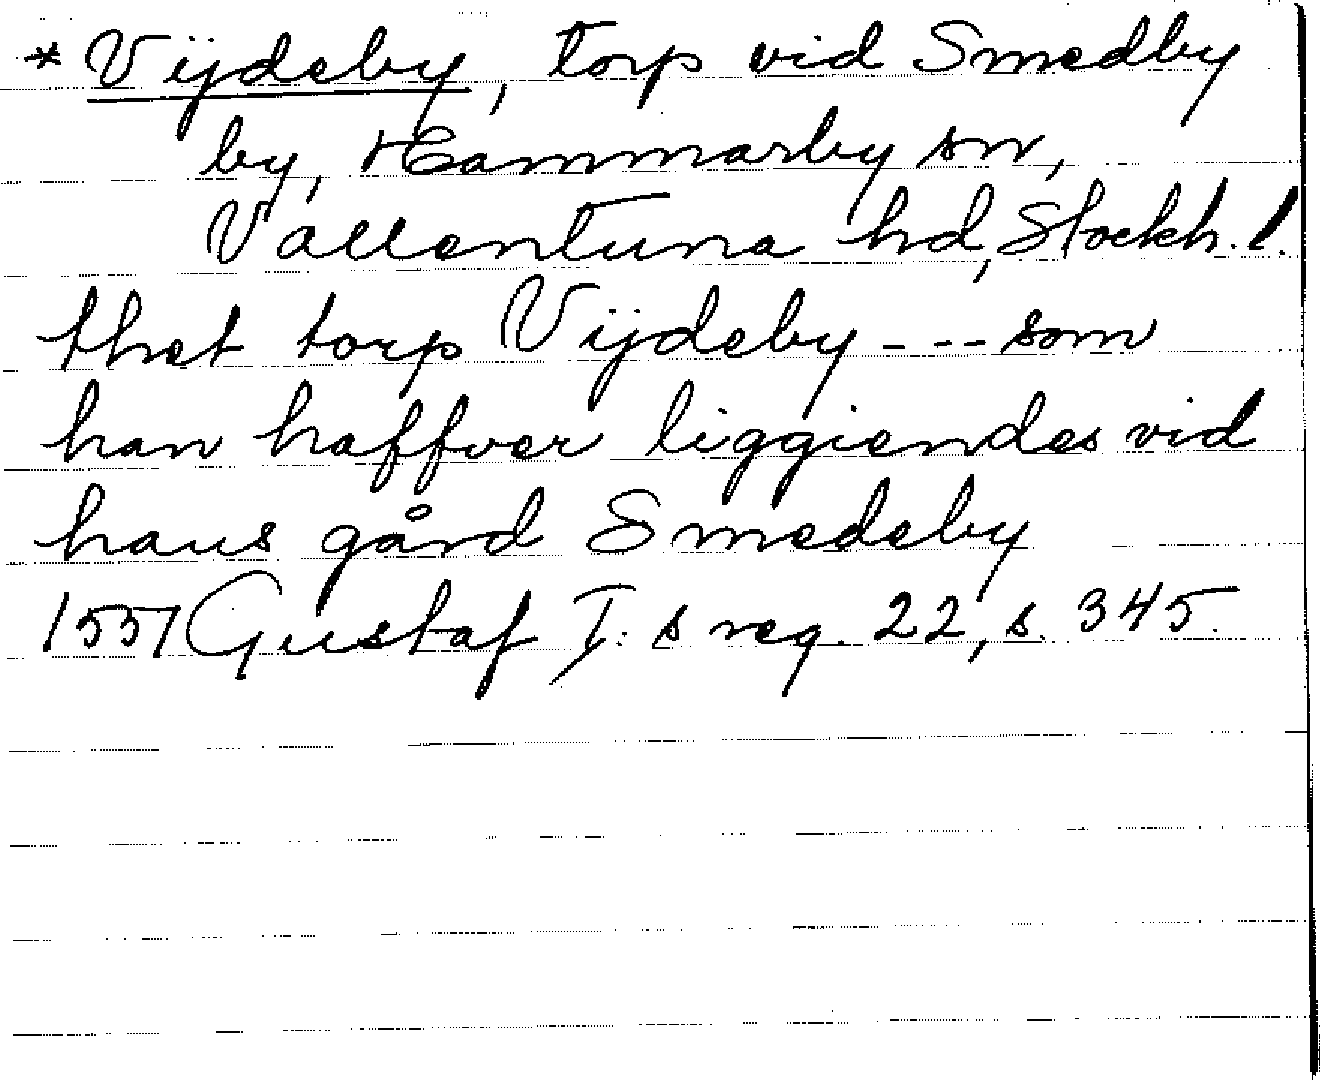 * Vijdeby, torp vid Smedby
by, Hammarby sn,
Vallentuna hd, Stockh. l.
thet torp Vijdeby --- som
han haffver liggiendes vid
hans gård Smedeby
1551 Gustaf I:s reg. 22, s. 345.